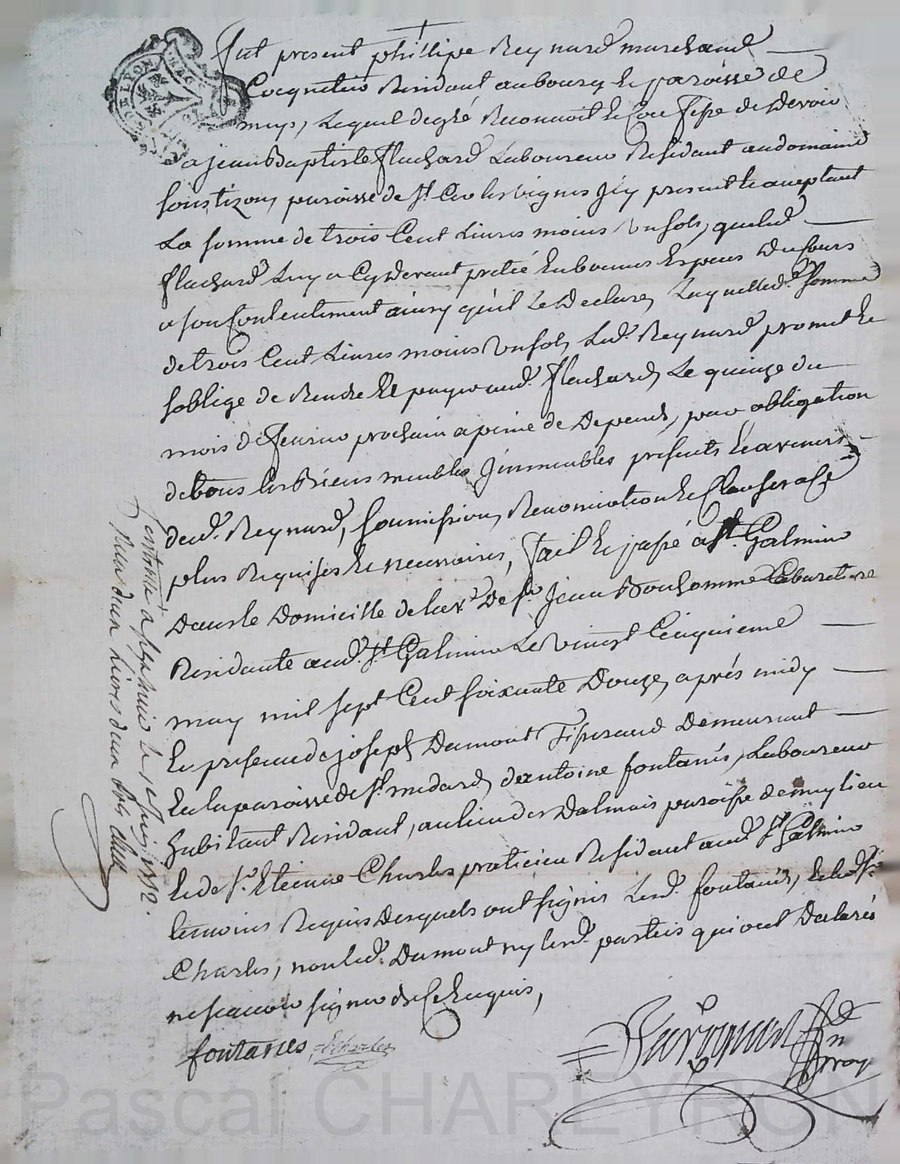 fut present philipe Reynard marchand
Cocqnetier Residant au bourg et paroisse de
mys, Lequel degré Reconnoit et Confesse de Devoir
a jean Baptiste flachard Laboureur Residant au domaine
paroisse de St. Cir les vignes Icy present et aceptant
La somme de trois Cent Livres moins un sols, que led.
flachard Luy a Cy Devant preté En bonnes Especes Du Cours
a son Contentement ainsy qu'il Le Declare, Laquelle d. somme
de trois Cent Livres moins un sols, Led. Reynard promet et
soblige de Rendre et payer aud. flachard, Le quinze du
mois de fevrier prochain a peine de Depends, pour obligation
de tous ses Biens meubles Immeubles presents et avenirs
dud. Reynard, soumission, Renonciation et Clauses a ce
plus Requises et necessaires, fait et passé a St. Galmier
Dans le Domicille de la ve. De sr. Jean Bonhomme Cabaretiere
Residante aud. St. Galmier Le vingt Cinquieme
may mil sept Cent soixante Douze, aprés midy
En presence de joseph Dumont Tisserand Demeurant
En la paroisse de St. medard, d'antoine fontanés, Laboureur
habitant Residant, au lieu des Dalmais paroisse de
Et de sr. Etienne Charles praticien Residant aud. St. Galmier
temoins Requis Desquels ont signés Led. fontanés, Et led. sr.
Charles, non led. Dumont ny lesd. parties qui ont Declarés
ne sçavoir signer de Ce Enquis,
fontanes Echarles
no. roy
Controllé a St. galmier le 1772.
Pascal CHAREYRON